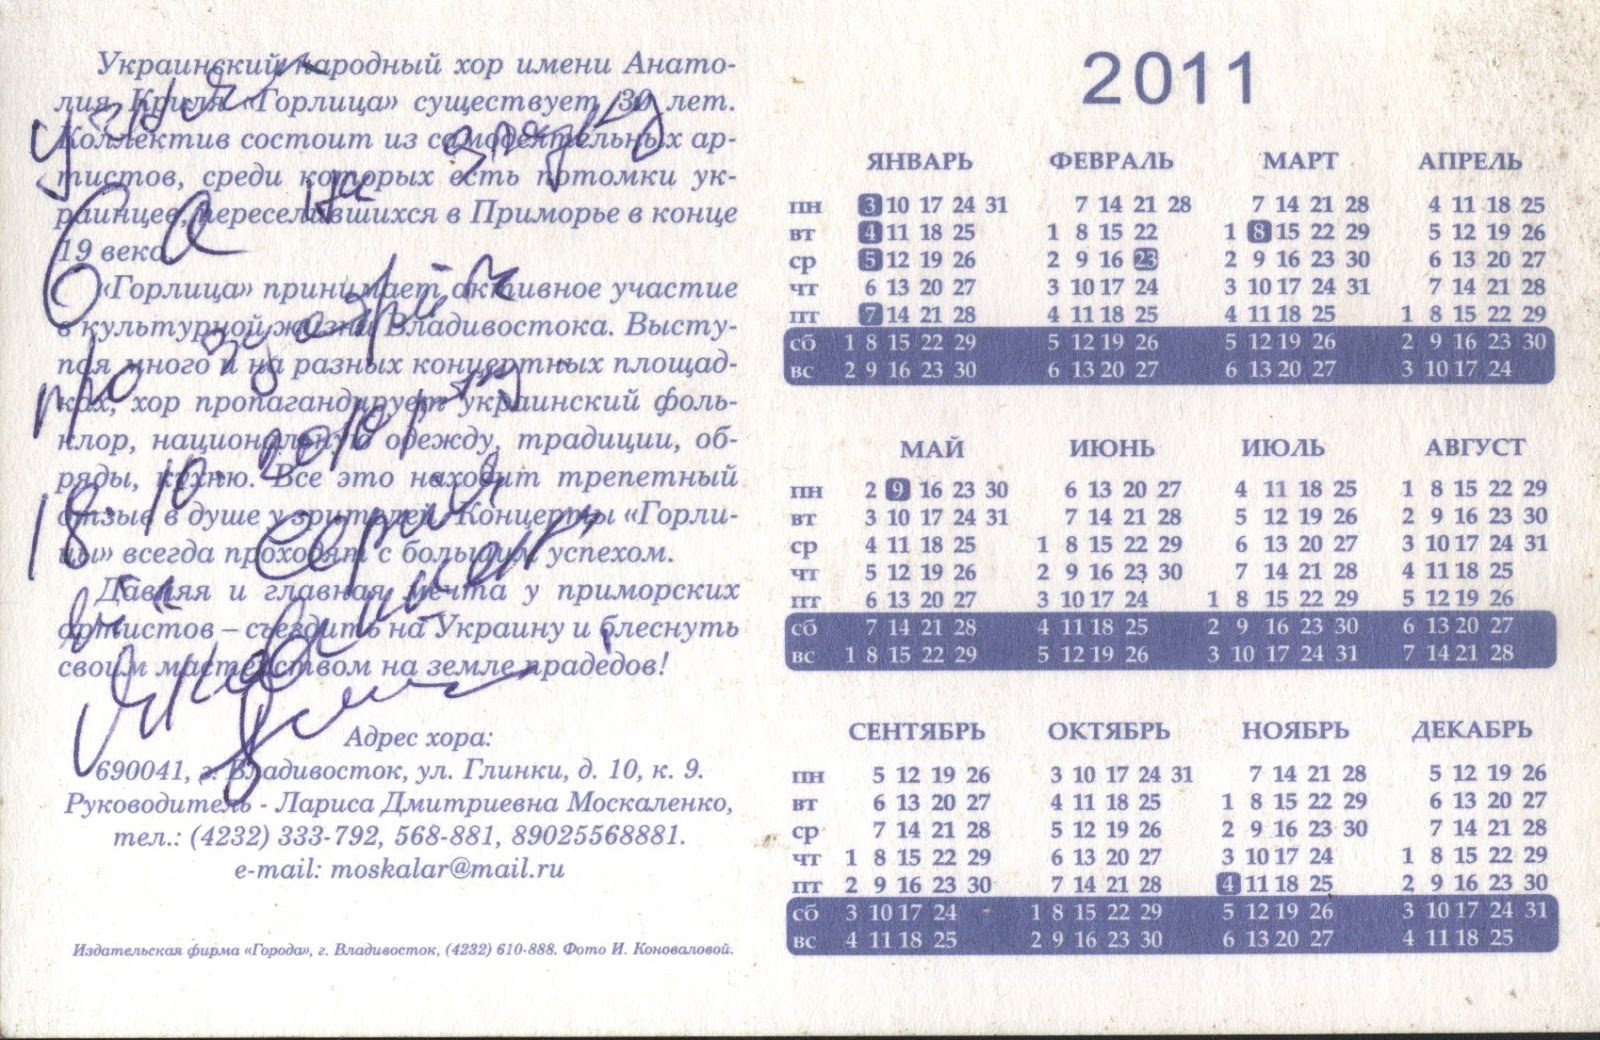 Украинский народный хор имени Анато-
лия Криля «Горлица» существует 30 лет.
Коллектив состоит из самодеятельных ар-
тистов, среди которых есть потомки ук-
раинцев, переселившихся в Приморье в конце
19 века.
«Горлица» принимает активное участие
в культурной жизни Владивостока. Высту-
пая много и на разных концертных площад-
ках, хор пропагандирует украинский фоль-
клор, национальную одежду, традиции, об-
ряды, кухню. Все это находит трепетный
отзыв в душе у зрителей. Концерты «Горли-
цы» всегда проходят с большим успехом.
Давняя и главная мечта у приморских
артистов – съездить на Украину и блеснуть
своим мастерством на земле прадедов!
на
про
18. 10.
Адрес хора:
690041, г. Владивосток, ул. Глинки, д. 10, к. 9.
Руководитель - Лариса Дмитриевна Москаленко,
тел.: (4232) 333-792, 568-881, 89025568881.
e-mail: moskalar@mail.ru
Издательская фирма «Города», г. Владивосток, (4232) 610-888. Фото И. Коноваловой.
2011
ЯНВАРЬ ФЕВРАЛЬ МАРТ АПРЕЛЬ
пн 3 10 17 24 31 7 14 21 28 7 14 21 28 4 11 18 25
вт 4 11 18 25 1 8 15 22 1 8 15 22 29 5 12 19 26
ср 5 12 19 26 2 9 16 23 2 9 16 23 30 6 13 20 27
чт 6 13 20 27 3 10 17 24 3 10 17 24 31 7 14 21 28
пт 7 14 21 28 4 11 18 25 4 11 18 25 1 8 15 22 29
сб 1 8 15 22 29 5 12 19 26 5 12 19 26 2 9 16 23 30
вс 2 9 16 23 30 6 13 20 27 6 13 20 27 3 10 17 24
МАЙ ИЮНЬ ИЮЛЬ АВГУСТ
пн 2 9 16 23 30 6 13 20 27 4 11 18 25 1 8 15 22 29
вт 3 10 17 24 31 7 14 21 28 5 12 19 26 2 9 16 23 30
ср 4 11 18 25 1 8 15 22 29 6 13 20 27 3 10 17 24 31
чт 5 12 19 26 2 9 16 23 30 7 14 21 28 4 11 18 25
пт 6 13 20 27 3 10 17 24 1 8 15 22 29 5 12 19 26
сб 7 14 21 28 4 11 18 25 2 9 16 23 30 6 13 20 27
вс 1 8 15 22 29 5 12 19 26 3 10 17 24 31 7 14 21 28
СЕНТЯБРЬ ОКТЯБРЬ НОЯБРЬ ДЕКАБРЬ
пн 5 12 19 26 3 10 17 24 31 7 14 21 28 5 12 19 26
вт 6 13 20 27 4 11 18 25 1 8 15 22 29 6 13 20 27
ср 7 14 21 28 5 12 19 26 2 9 16 23 30 7 14 21 28
чт 1 8 15 22 29 6 13 20 27 3 10 17 24 1 8 15 22 29
пт 2 9 16 23 30 7 14 21 28 4 11 18 25 2 9 16 23 30
сб 3 10 17 24 1 8 15 22 29 5 12 19 26 3 10 17 24 31
вс 4 11 18 25 2 9 16 23 30 6 13 20 27 4 11 18 25